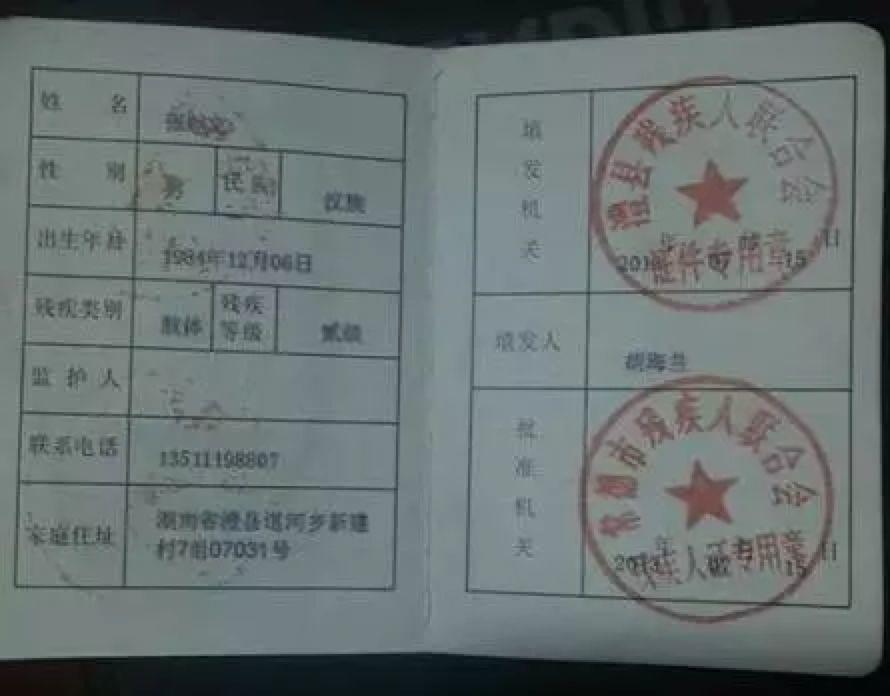 姓 名
性 别 男 民族 汉族
出生年月 1984年12月06日
残疾类别 肢体 残疾等级 贰级
监护人
联系电话 13511198807
家庭住址 湖南省澧县道河乡新建
村7组07031号
填发机关
澧县残疾人联合会
证件专用章
年 日
15
填发人 胡海兰
批准机关
常德市残疾人联合会
残疾人证专用章
年 日
15